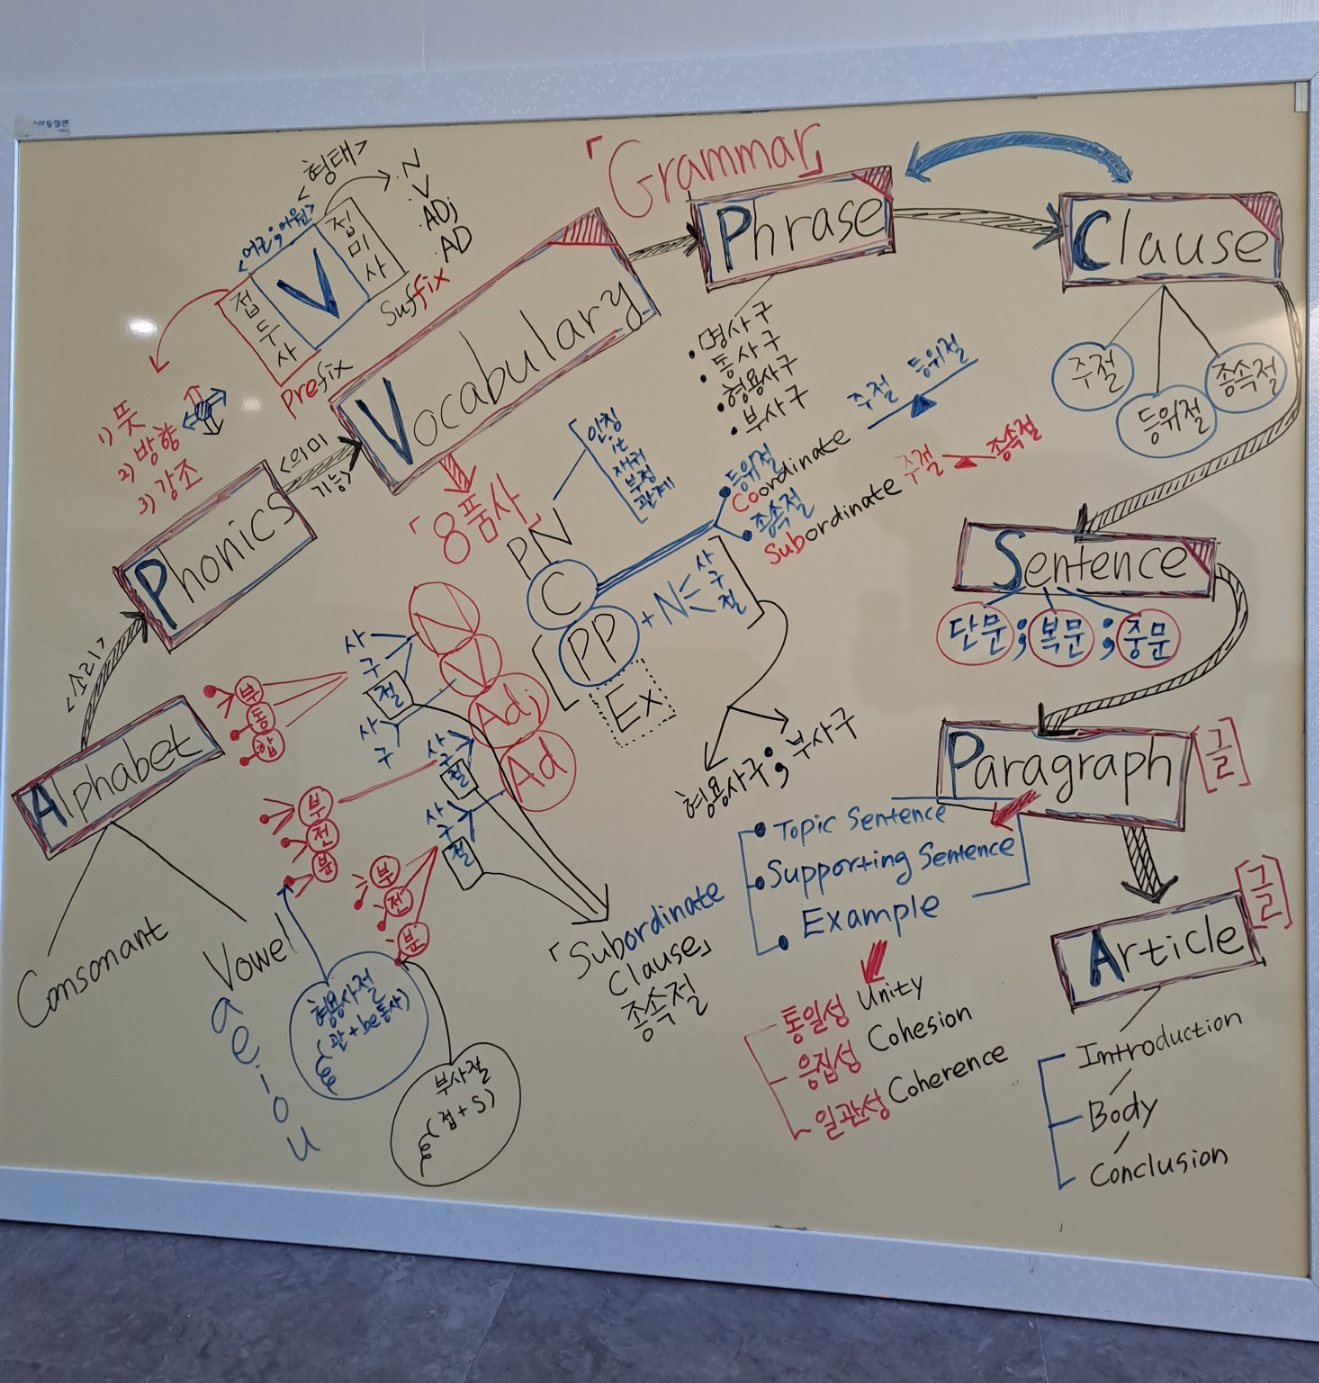 「Grammar」
<형태>
N
V
ADj
AD
<어근;어원>
접두사
V
접미사
Prefix
Suffix
1) 뜻
2) 방향
3) 강조
Alphabet
<소리>
Phonics
<의미
기능>
Vocabulary
Phrase
Clause
• 명사구
• 동사구
• 형용사구
• 부사구
주절
등위절
종속절
「8품사」
PN
인칭
it
재귀
부정
관계
C
• 등위절
Coordinate
주절 등위절
• 종속절
Subordinate
주절 종속절
PP
+N
사
구
절
Ex
형용사구;부사구
N
V
Adj
Ad
사
구
절
사
구
사
구
절
사
구
절
부
동
부
전
분
부
전
분
Consonant
Vowel
a
e
i
o
u
형용사절
(관+be동사)
부사절
(접+S)
「Subordinate
Clause」
종속절
Sentence
단문;복문;중문
Paragraph
[글]
• Topic Sentence
• Supporting Sentence
• Example
통일성 Unity
응집성 Cohesion
일관성 Coherence
Article
[글]
Introduction
Body
Conclusion